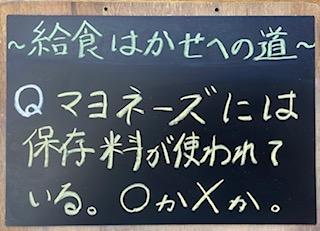 ～給食はかせへの道～
Qマヨネーズには
保存料が使われて
いる。○か×か。